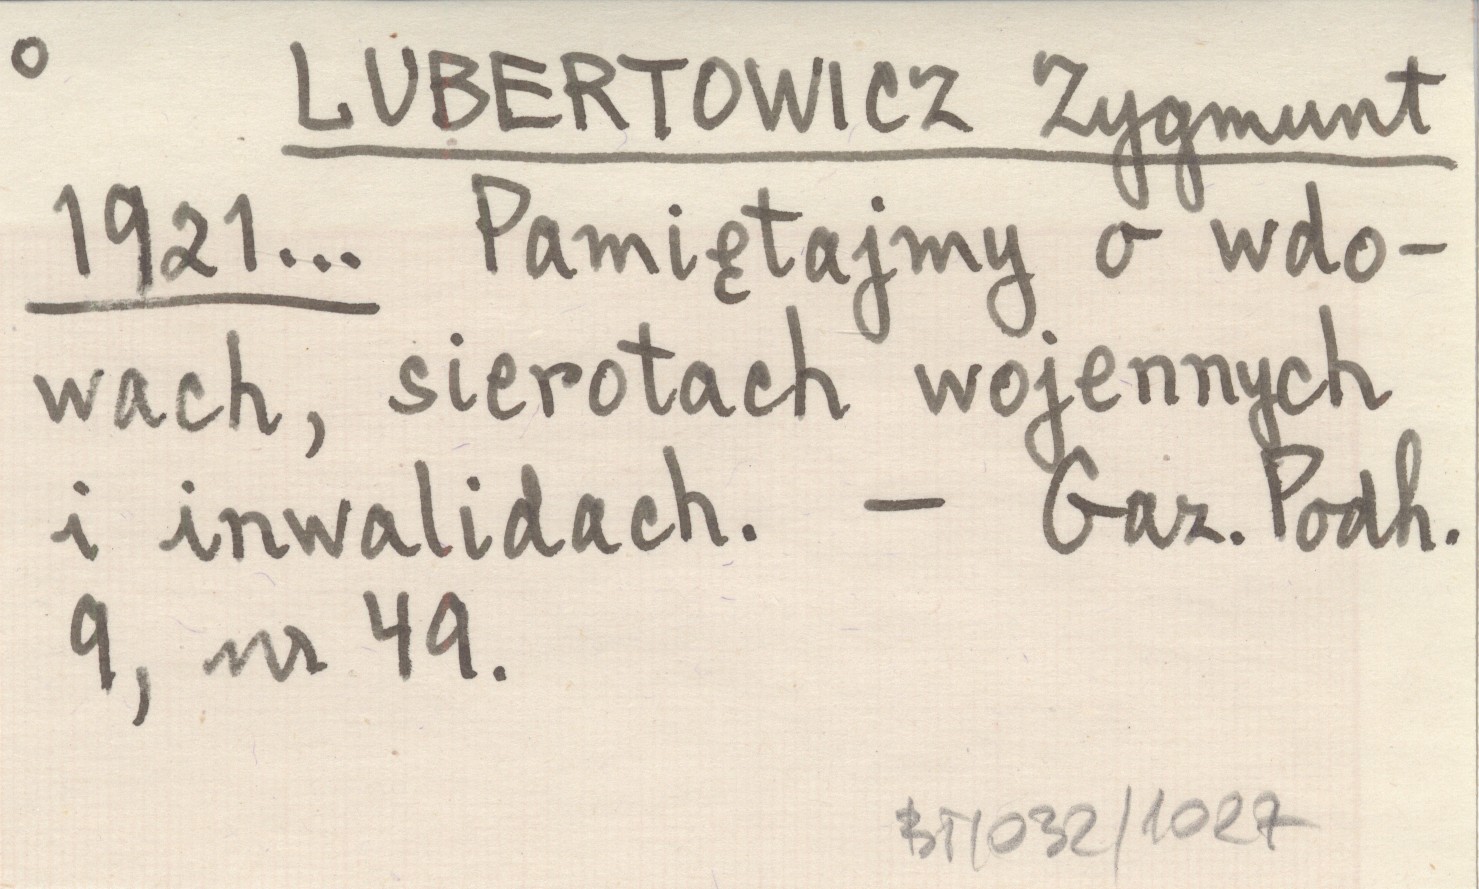 o LUBERTOWICZ Zygmunt
1921... Pamiętajmy o wdo-
wach, sierotach wojennych
i inwalidach. - Gaz. Podh.
9, nr 49.
BT/032/1027